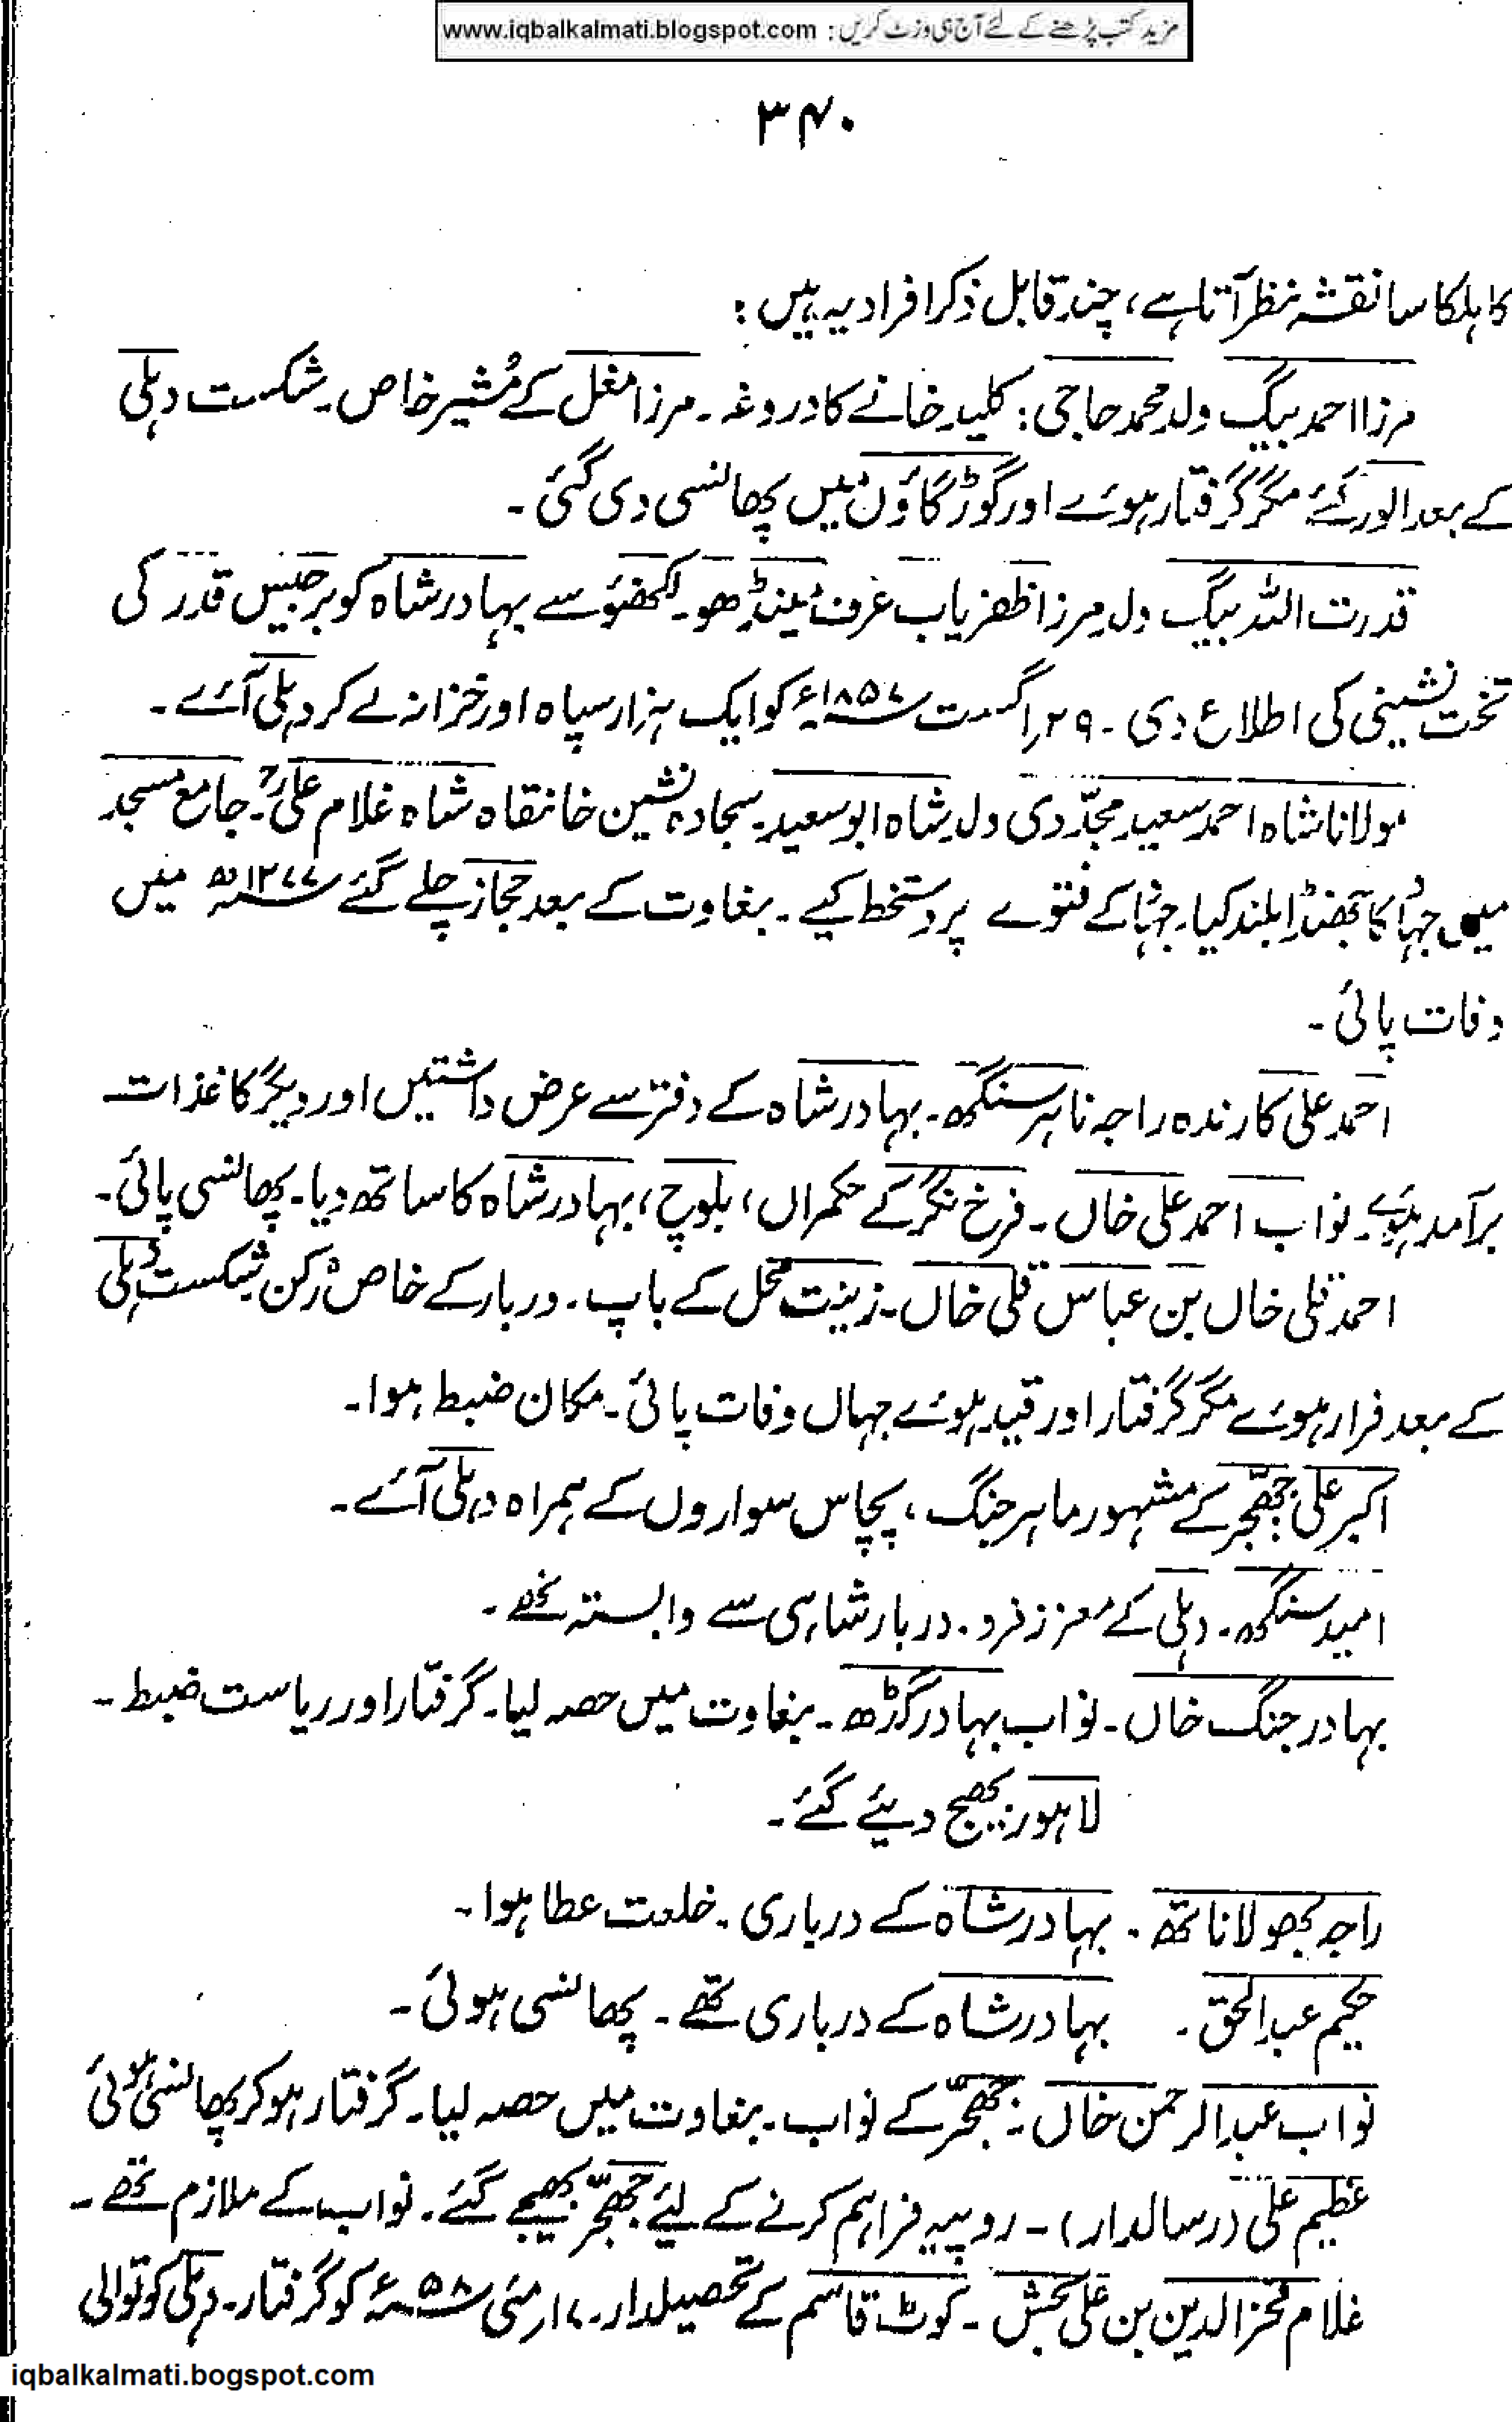 www.iqbalkalmati.blogspot.com : مزید کتب پڑھنے کے لئے آج ہی وزٹ کریں
۳۴۰
کا ہلکا سا نقشہ نظر آتا ہے، چند قابل ذکر افراد یہ ہیں :
مرزا احمد بیگ ولد محمد حاجی : کلید خانے کا دروغہ ۔ مرزا مغل کے مُشیر خاص ۔ شکست دہلی
کے بعد الور گئے مگر گرفتار ہوئے اور گوڑگاؤں میں پھانسی دی گئی ۔
قدرت اللہ بیگ ولد مرزا ظفر یاب عرف مینڈھو ۔ لکھنؤ سے بہادر شاہ کو برجیس قدر کی
تخت نشینی کی اطلاع دی ۔ ۲۹ اگست ۱۸۵۷ء کو ایک ہزار سپاہ اور خزانہ لے کر دہلی آئے ۔
مولانا شاہ احمد سعید مجدّدی ولد شاہ ابو سعید ۔ سجادہ نشین خانقاہ شاہ غلام علیؒ ۔ جامع مسجد
میں جہاد کا جھنڈا بلند کیا ۔ جہاد کے فتوے پر دستخط کیے ۔ بغاوت کے بعد حجاز چلے گئے ۱۲۷۷ھ میں
وفات پائی ۔
احمد علی کارندہ راجہ ناہر سنگھ ۔ بہادر شاہ کے دفتر سے عرض داشتیں اور دیگر کاغذات
برآمد ہوئے ۔ نواب احمد علی خاں ۔ فرخ نگر کے حکمراں، بلوچ، بہادر شاہ کا ساتھ دیا ۔ پھانسی پائی ۔
احمد قلی خاں بن عباس قلی خاں ۔ زینت محل کے باپ ۔ دربار کے خاص رُکن شکست دہلی
کے بعد فرار ہوئے مگر گرفتار اور قید ہوئے جہاں وفات پائی ۔ مکان ضبط ہوا ۔
اکبر علی جھجّر کے مشہور ماہر جنگ ، پچاس سواروں کے ہمراہ دہلی آئے ۔
امید سنگھ ۔ دہلی کے معزز فرد . دربار شاہی سے وابستہ تھے ۔
بہادر جنگ خاں ۔ نواب بہادر گڑھ ۔ بغاوت میں حصہ لیا ۔ گرفتار اور ریاست ضبط ۔
لاہور بھیج دیئے گئے ۔
راجہ بھولا ناتھ ۔ بہادر شاہ کے درباری ۔ خلعت عطا ہوا ۔
حکیم عبدالحق ۔ بہادر شاہ کے درباری تھے ۔ پھانسی ہوئی ۔
نواب عبدالرحمن خاں ۔ جھجّر کے نواب ۔ بغاوت میں حصہ لیا ۔ گرفتار ہو کر پھانسی ہوئی
عظیم علی (رسالدار) ۔ روپیہ فراہم کرنے کے لیئے جھجّر بھیجے گئے ۔ نواب کے ملازم تھے ۔
غلام فخر الدین بن علی بخش ۔ کوٹ قاسم کے تحصیلدار ۔ ۷ مئی ۵۸ء کو گرفتار ۔ دہلی کوتوالی
iqbalkalmati.bogspot.com